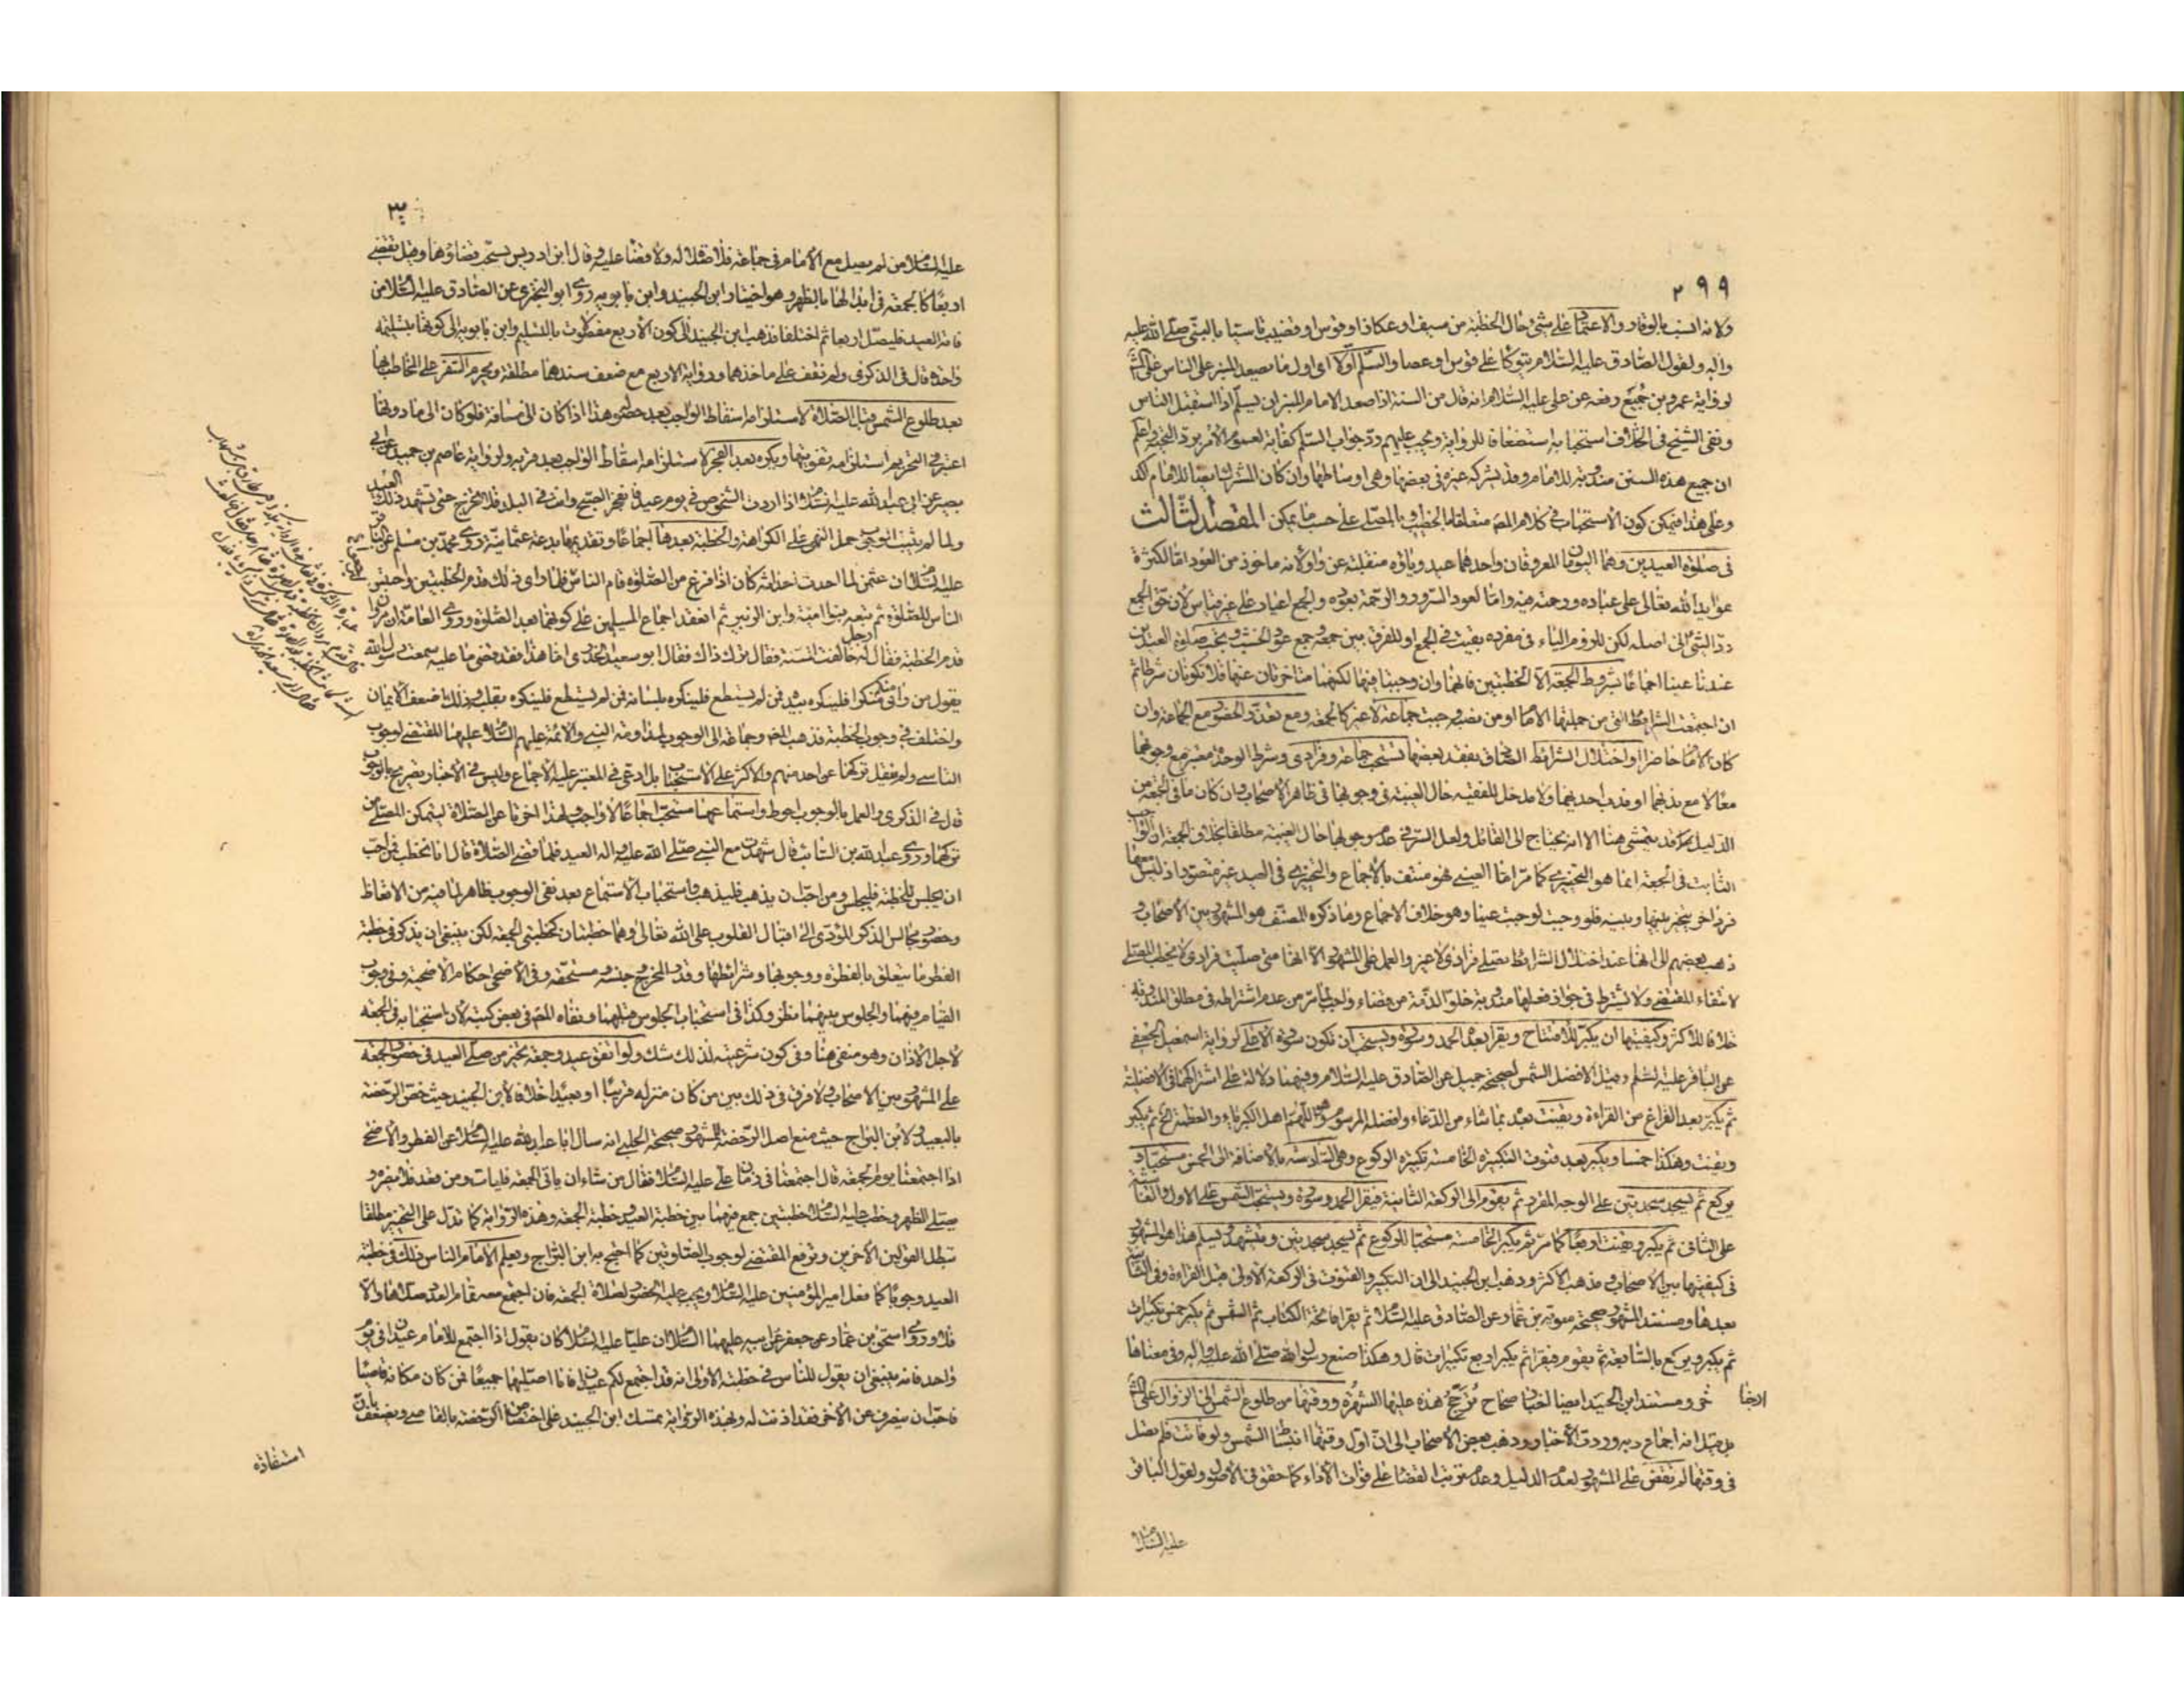 ٢٩٩
ولانه انسب بالوقار والاعتماد على شئ حال الخطبة من سيف او عكاز او قوس او قضيب تاسيا بالنبى صلى الله عليه
واله ولقول الصادق عليه السلام يتوكأ على قوس او عصا والسلم اولا اى اول ما يصعد المنبر على الناس على
لرواية عمرو بن جميع رفعه عن على عليه السلام انه قال من السنة اذا صعد الامام المنبر ان يسلم اذا استقبل الناس
ونفى الشيخ فى الخلاف استحبابه استضعافا للرواية ويجب عليهم رد جواب السلم كفاية لعموم الامر برد التحية واعلم
ان جميع هذه السنن مندوبة للامام وقد يشركه غيره فى بعضها وهى اوساطها وان كان
وعلى هذا فيمكن كون الاستحباب فى كلام المصـ متعلقا بالخطيب والمصلى على حسب ما يمكن المقصد الثالث
فى صلوة العيدين وهما اليومان المعروفان واحدهما عيد وياؤه منقلبة عن واو لانه ماخوذ من العود اما لكثرة
عوايد الله تعالى على عباده ورحمته فيه واما لعود السرور والرحمة بعوده والجمع اعياد على غير قياس لان حق الجمع
رد الشئ الى اصله لكن للزوم الياء فى مفرده بقيت فى الجمع او للفرق بين جمعه وجمع عود الخشب ويجب صلوة العيدين
عندنا عينا اجماعا بشروط الجمعة الا الخطبتين فانهما وان وجبتا فيها لكنهما متاخرتان عنها فلا تكونان شرطا ثم
ان اجتمعت الشرايط التى من جملتها الامام او من نصبه وجبت جماعة لا غير كالجمعة ومع تعذر الحضور مع الجماعة وان
كان الامام حاضرا او لاختلال الشرائط الصادق بفقد بعضها تستحب جماعة وفرادى وشرط الوحدة معتبر مع وجوبهما
معا لا مع ندبهما او ندب احديهما ولا مدخل للفقيه حال الغيبة فى وجوبها فى ظاهر الاصحاب وان كان ما فى الجمعة من
الدليل قد يتمشى هنا الا انه يحتاج الى القائل ولعل السر فى عدم وجوبها حال الغيبة مطلقا بخلاف الجمعة ان الواجب
الثابت فى الجمعة انما هو التخييرى كما مر اما العينى فهو منتف بالاجماع والتخييرى فى العيد غير متصور اذ ليس معها
فرد اخر يتخير بينها وبينه فلو وجبت لوجبت عينا وهو خلاف الاجماع وما ذكره المصنف هو المشهور بين الاصحاب و
ذهب بعضهم الى انها عند اختلال الشرائط تصلى فرادى لا غير والعمل على المشهور الا انها متى صليت فرادى لا يخطب المصلى
لانتفاء المقتضى ولا يشترط فى جواز فعلها مندوبة خلو الذمة من قضاء واجب لما مر من عدم اشتراطه فى مطلق المندوبة
خلافا للاكثر وكيفيتها ان يكبر للافتتاح ويقرأ بعده الحمد وسورة ويستحب ان تكون سورة الاعلى لرواية اسمعيل الجعفى
عن الباقر عليه السلم وقيل الافضل الشمس لصحيحة جميل عن الصادق عليه السلام وفيهما دلالة على اشتراكهما فى الافضلية
ثم يكبر بعد الفراغ من القراءة ويقنت بعده بما شاء من الدعاء وافضله المرسوم وهو اللهم اهل الكبرياء والعظمة الخ ثم يكبر
ويقنت وهكذا خمسا ويكبر بعد قنوت التكبيرة الخامسة تكبيرة الركوع وهى السادسة بالاضافة الى الخمس مستحبا و
يركع ثم يسجد سجدتين على الوجه المقرر ثم يقوم الى الركعة الثانية فيقرأ الحمد وسورة ويستحب الشمس على الاول والغاشية
على الثانى ثم يكبر ويقنت اربعا كما مر ثم يكبر الخامسة مستحبا للركوع ثم يسجد سجدتين ويتشهد ويسلم هذا هو المشهور
فى كيفيتها بين الاصحاب ومذهب الاكثر وذهب ابن الجنيد الى ان التكبير والقنوت فى الركعة الاولى قبل القراءة وفى الثانية
بعدها ومستند المشهور صحيحة معوية بن عمار عن الصادق عليه السلام ثم يقرأ فاتحة الكتاب ثم الشمس ثم يكبر خمس تكبيرات
ثم يكبر ويركع بالسابعة ثم يقوم فيقرأ ثم يكبر اربع تكبيرات قال وهكذا صنع رسول الله صلى الله عليه واله وفى معناها
ومستند ابن الجنيد ايضا اخبار صحاح ترجح هذه عليها الشهرة ووقتها من طلوع الشمس الى الزوال على
بل قيل انه اجماع وبه وردت الاخبار وذهب بعض الاصحاب الى ان اول وقتها انبساط الشمس ولو فاتت فلم تصل
فى وقتها لم تقض على المشهور لعدم الدليل وعدم ترتب القضاء على فوات الاداء كما حقق فى الاصول ولقول الباقر
عليه السلام
عليه السلام من لم يصل مع الامام فى جماعة فلا صلاة له ولا قضاء عليه وقال ابن ادريس يستحب قضاؤها وقيل تقضى
اربعا كالجمعة فى ابدالها بالظهر وهو اختيار ابن الجنيد وابن بابويه روى ابو البخترى عن الصادق عليه السلام من
فاته العيد فليصل اربعا ثم اختلفا فذهب ابن الجنيد الى كون الاربع مفصولات بالتسليم وابن بابويه الى كونها بتسليمة
واحدة قال فى الذكرى ولم نقف على ماخذهما ورواية الاربع مع ضعف سندها مطلقة ويحرم السفر على المخاطب بها
بعد طلوع الشمس قبل الصلاة لاستلزامه اسقاط الواجب بعد حضوره هذا اذا كان الى مسافة فلو كان الى ما دونها
اعتبر فى التحريم استلزامه تفويتها ويكره بعد الفجر لاستلزامه اسقاط الواجب بعد قربه ولرواية عاصم بن حميد عن ابى
بصير عن ابى عبد الله عليه السلام اذا اردت الشخوص فى يوم عيد فانفجر الصبح وانت فى البلد فلا تخرج حتى تشهد ذلك العيد
ولما لم يثبت الوجوب حمل النهى على الكراهة والخطبة بعدها اجماعا وتقديمها بدعة عثمانية روى محمد بن مسلم عن
عليه السلام ان عثمن لما احدث احداثه كان اذا فرغ من الصلوة قام الناس فلما راى ذلك قدم الخطبتين واحتبس
الناس للصلوة ثم تبعه بنو امية وابن الزبير ثم انعقد اجماع المسلمين على كونها بعد الصلوة وروى العامة ان مروان
قدم الخطبة فقال له رجل خالفت السنة فقال ترك ذاك فقال ابو سعيد الخدرى اما هذا فقد قضى ما عليه سمعت رسول الله
يقول من راى منكم منكرا فلينكره بيده فمن لم يستطع فلينكره بلسانه فمن لم يستطع فلينكره بقلبه وذلك اضعف الايمان
واختلف فى وجوب الخطبة فذهب المصـ وجماعة الى الوجوب لمداومة النبى والائمة عليهم السلام عليهما المقتضى لوجوب
التاسى ولم ينقل تركها عن احد منهم والاكثر على الاستحباب بل ادعى فى المعتبر عليه الاجماع وليس فى الاخبار تصريح بالوجوب
قال فى الذكرى والعمل بالوجوب احوط واستماعهما مستحب اجماعا لا واجب ولهذا اخرتا عن الصلاة ليتمكن المصلى من
تركهما وروى عبد الله بن السائب قال شهدت مع النبى صلى الله عليه واله العيد فلما قضى الصلاة قال انا نخطب فمن احب
ان يجلس للخطبة فليجلس ومن احب ان يذهب فليذهب واستحباب الاستماع بعد نفى الوجوب ظاهر لما فيه من الاتعاظ
وحضور مجالس الذكر المؤدى الى اقبال القلوب على الله تعالى وهما خطبتان كخطبتى الجمعة لكن ينبغى ان يذكر فى خطبة
الفطر ما يتعلق بالفطرة ووجوبها وشرائطها وقدر المخرج وجنسه ومستحقه وفى الاضحى احكام الاضحية وفى وجوب
القيام فيهما والجلوس بينهما نظر وكذا فى استحباب الجلوس قبلهما ونفاه المصـ فى بعض كتبه لان استحبابه فى الجمعة
لاجل الاذان وهو منفى هنا وفى كون شرعيته لذلك شك ولو اتفق عيد وجمعة تخير من صلى العيد فى حضور الجمعة
على المشهور بين الاصحاب ولا فرق فى ذلك بين من كان منزله قريبا او بعيدا خلافا لابن الجنيد حيث خص الرخصة
بالبعيد ولابن البراج حيث منع اصل الرخصة للمشهور صحيحة الحلبى انه سال ابا عبد الله عليه السلام عن الفطر والاضحى
اذا اجتمعتا يوم الجمعة قال اجتمعتا فى زمان على عليه السلام فقال من شاء ان ياتى الجمعة فليات ومن قعد فلا يضره و
صلى الظهر وخطب عليه السلام خطبتين جمع فيهما بين خطبة العيد وخطبة الجمعة وهذه الرواية كما تدل على التخيير مطلقا
تبطل القولين الاخرين وترفع المقتضى لوجوب الصلوتين كما احتج به ابن البراج ويعلم الامام الناس ذلك فى خطبة
العيد وجوبا كما فعل امير المؤمنين عليه السلام ويجب عليه الحضور لصلاة الجمعة فان اجتمع معه العدد صلاها والا
فلا وروى اسحق بن عمار عن جعفر عن ابيه عليهما السلام ان عليا عليه السلام كان يقول اذا اجتمع للامام عيدان فى يوم
واحد فانه ينبغى ان يقول للناس فى خطبته الاولى انه قد اجتمع لكم عيدان فانا اصليهما جميعا فمن كان مكانه قاصيا
فاحب ان ينصرف عن الاخر فقد اذنت له وبهذه الرواية تمسك ابن الجنيد على اختصاص الرخصة بالقاصى ويضعف بان
استفاده